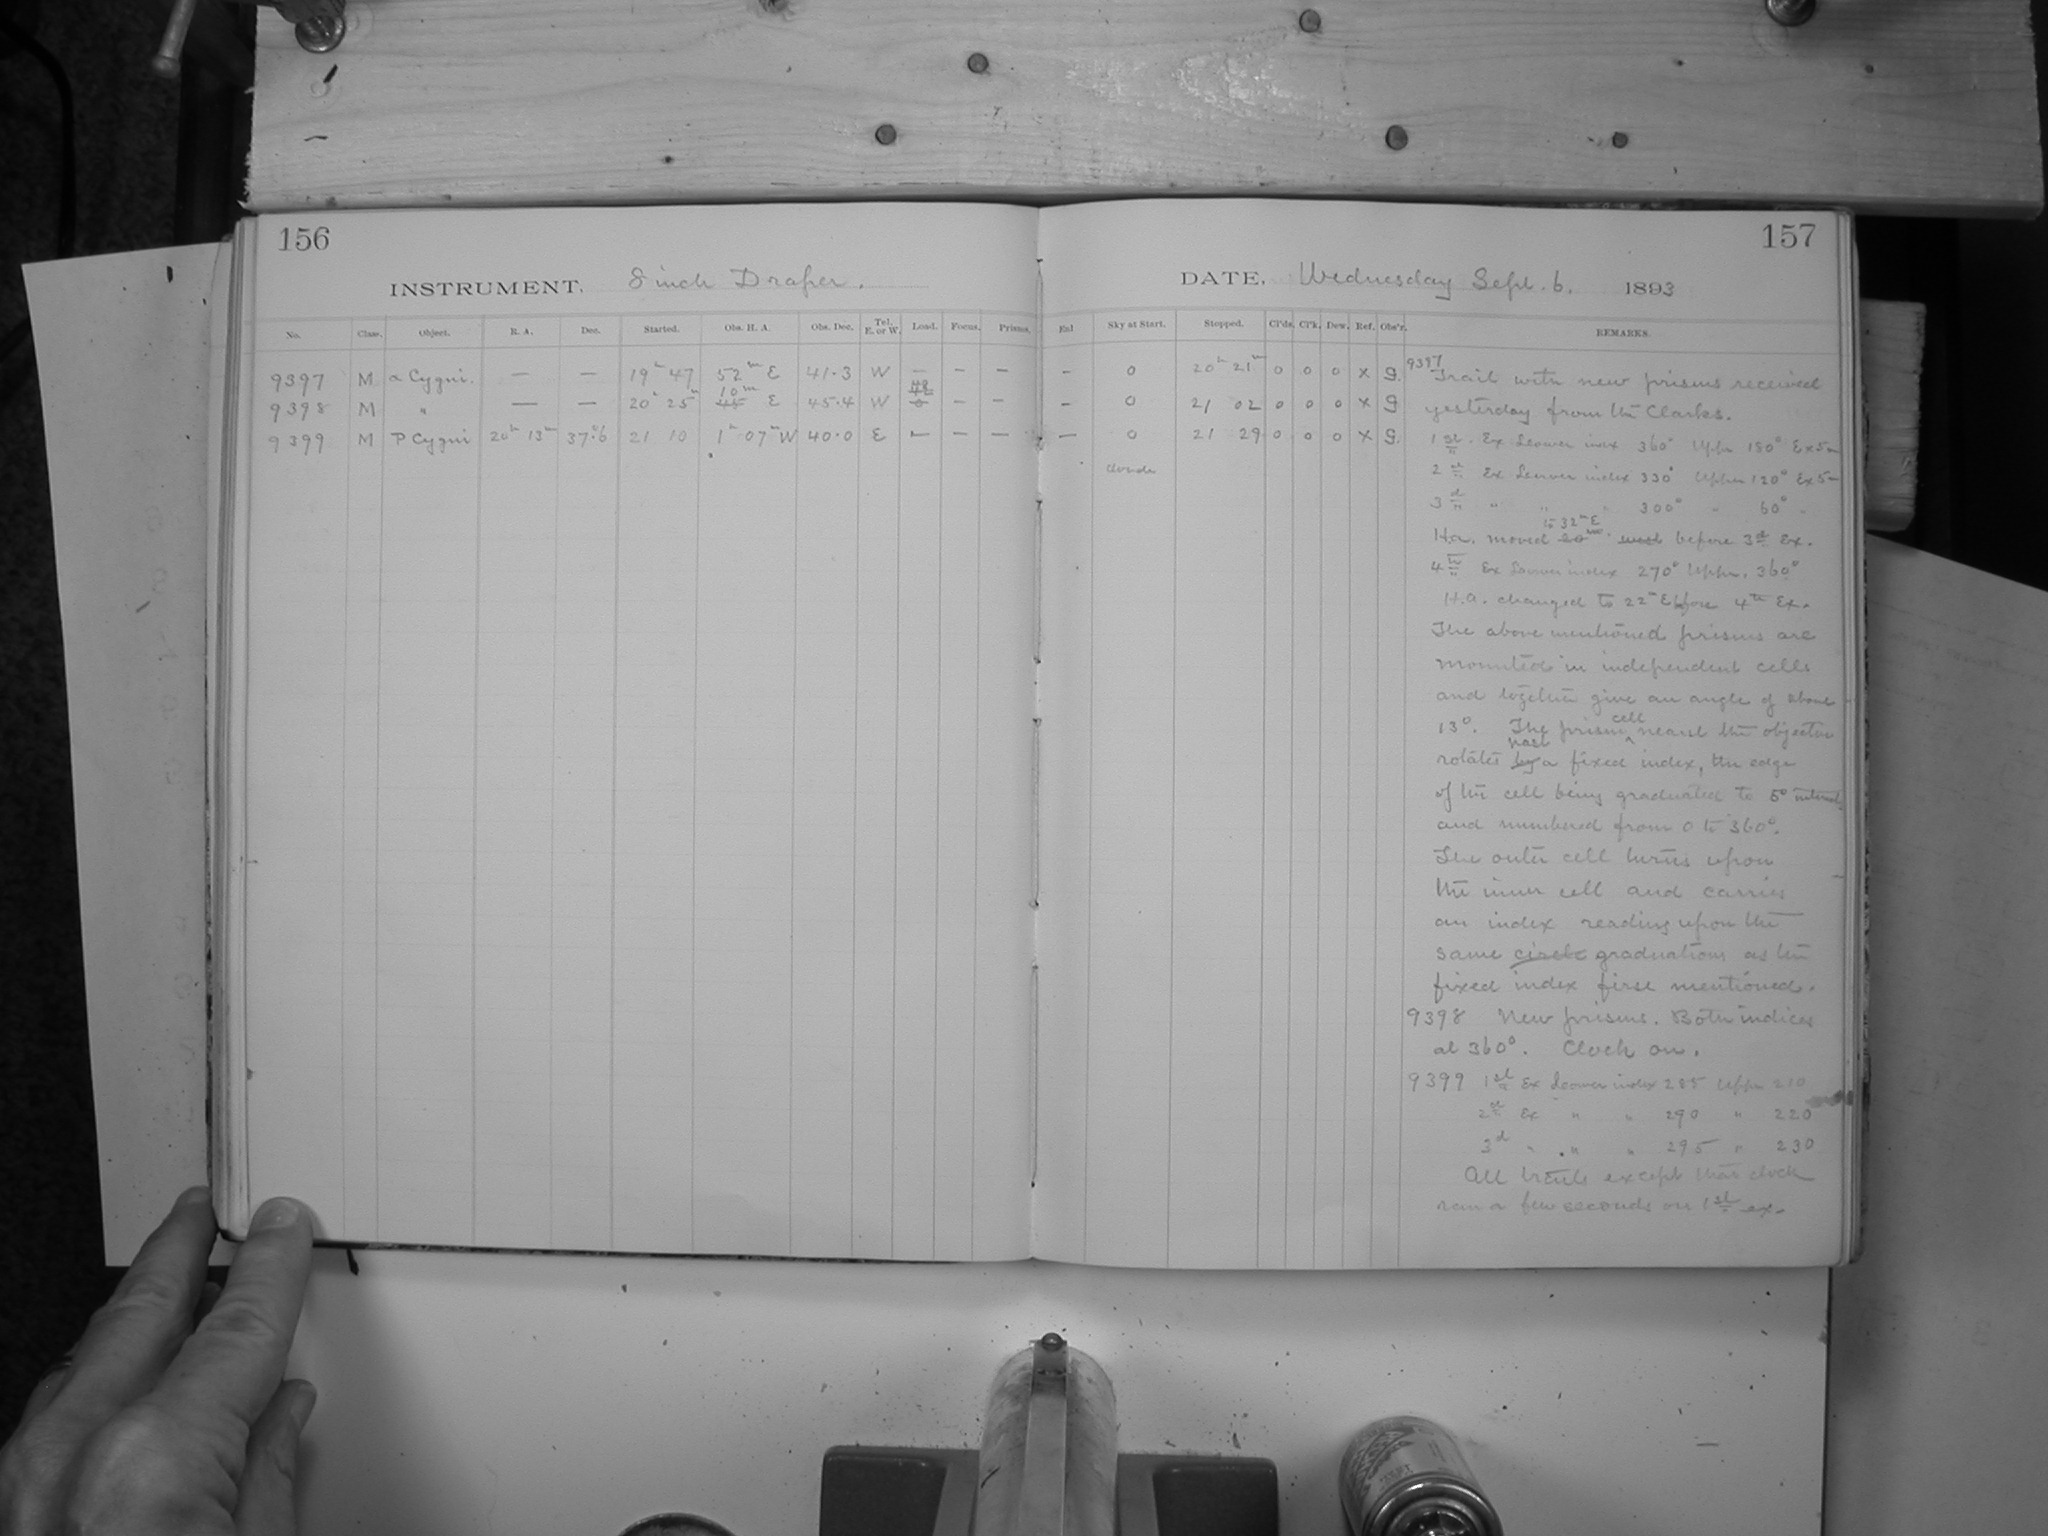 156
INSTRUMENT. 8 inch Draper.
No. Class. Object. R. A. Dec. Started. Obs. H. A. Obs. Dec. Tel. E. or W. Load. Focus. Prisms.
9397 M α Cygni. — — 19h 47 52m E 41.3 W — — —
9398 M " — — 20h 25m 10m E 45.4 W — —
9399 M P Cygni 20h 13m 37°.6 21 10 1h 07m W 40.0 E — — —
157
DATE, Wednesday Sept. 6. 1893
Sky at Start. Stopped. Cl'ds. Cl'k. Dew. Ref. Obs'r. REMARKS.
– 0 20h 21m 0 0 0 x G.
– 0 21 02 0 0 0 x G
— 0 21 29 0 0 0 x G.
clouds
9397 Trail with new prisms received
yesterday from the Clarks.
1st. Ex Lower index 360° Upper 180° Ex 5m
2d Ex Lower index 330° Upper 120° Ex 5m
3d " " " 300° " 60° "
to 32m E
H.a. moved 20m west before 3d Ex.
4th Ex Lower index 270° Upper. 360°
H.a. changed to 22m E before 4th Ex.
The above mentioned prisms are
mounted in independent cells
and together give an angle of above
13°. The prism cell nearest the objective
rotates past a fixed index, the edge
of the cell being graduated to 5° intervals
and numbered from 0 to 360°.
The outer cell turns upon
the inner cell and carries
an index reading upon the
same circle graduations as the
fixed index first mentioned.
9398 New prisms. Both indices
at 360°. Clock on.
9399 1st Ex Lower index 285 Upper 210
2d Ex " " 290 " 220
3d " " " 295 " 230
All trails except that clock
ran a few seconds on 1st ex.